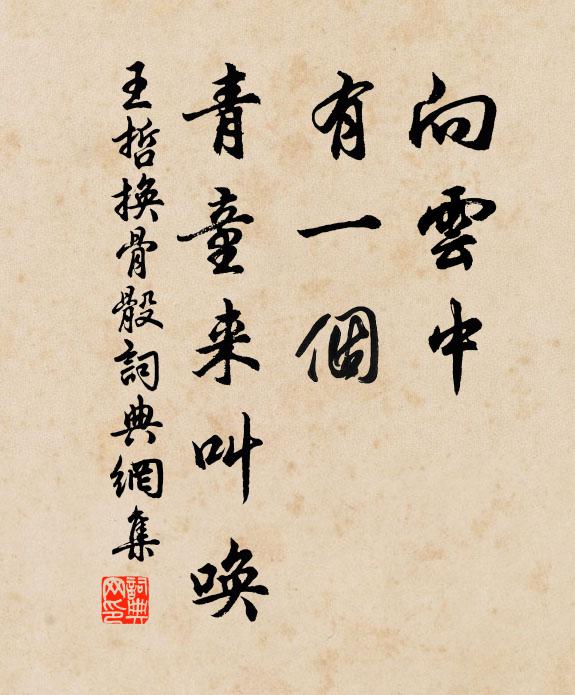 向雲中
有一個
青童来叫喚
王哲換骨骰詞典網集
詞典網印